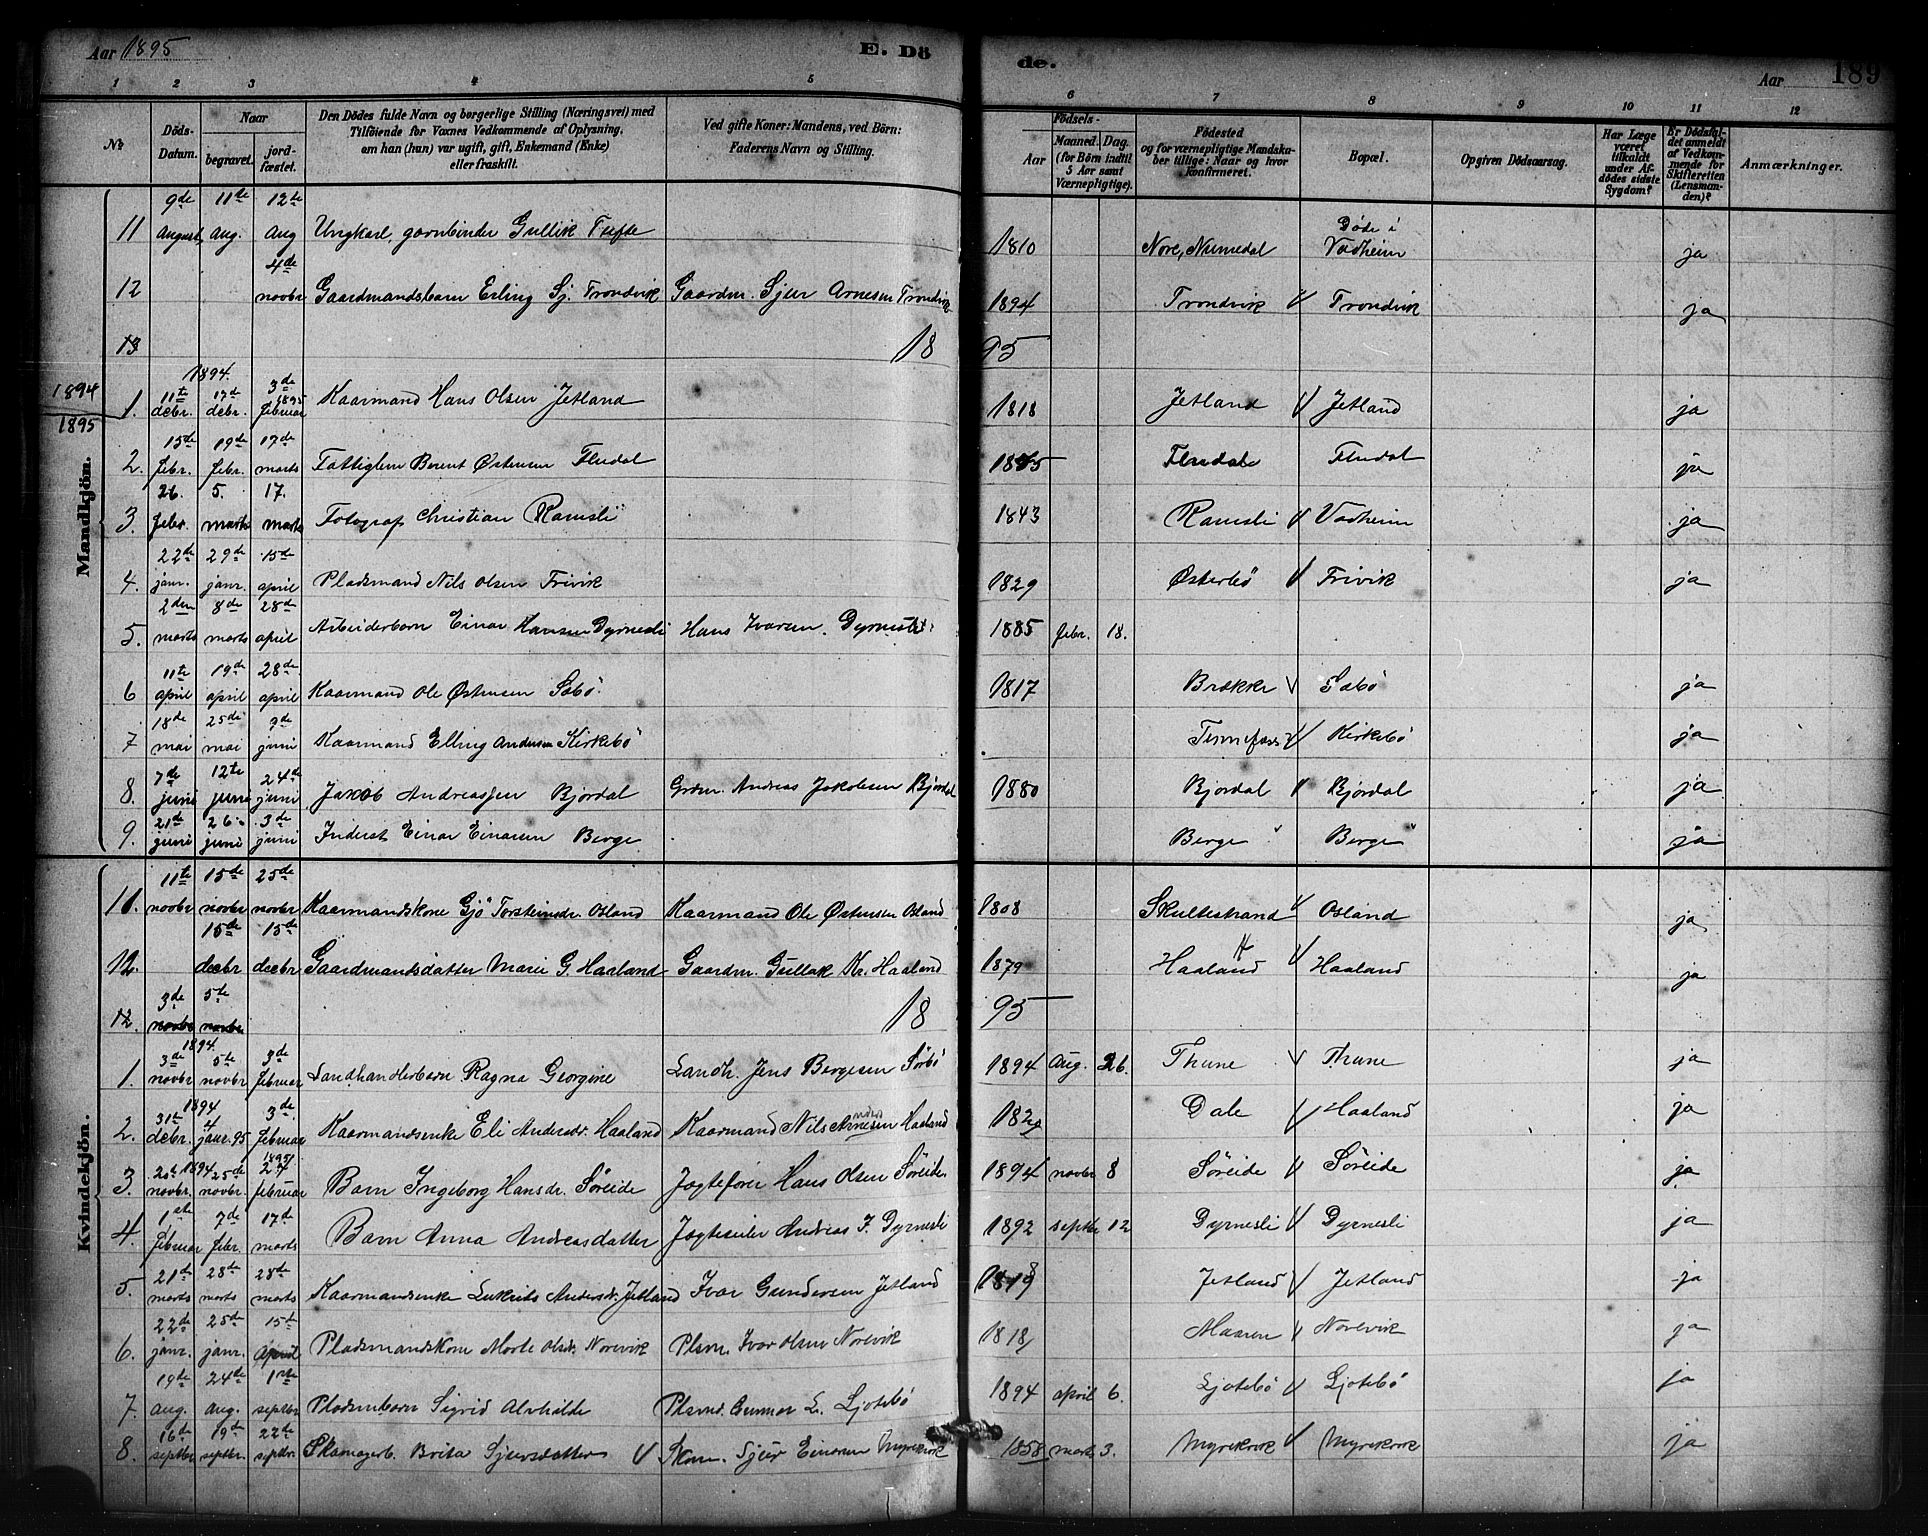 Aar 1895 E. Dö
de. Aar 189
1 2 3 4 5 6 7 8 9 10 11 12
No
Döds-Datum.
Naar
begravet.
jord-fæstet.
Den Dödes fulde Navn og borgerlige Stilling (Næringsvei) med
Tilföiende for Voxnes Vedkommende af Oplysning,
om han (hun) var ugift, gift, Enkemand (Enke)
eller fraskilt.
Ved gifte Koner: Mandens, ved Börn:
Faderens Navn og Stilling.
Födsels-
Aar
Maaned. Dag.
(for Börn indtil
5 Aar samt
Værnepligtige).
Födested
og for værnepligtige Mandska-
ber tillige: Naar og hvor
konfirmeret.
Bopæl.
Opgiven Dödsaarsag.
Har Læge
været
tilkaldt
under Af-
dödes sidste
Sygdom?
Er Dödsfal-
det anmeldt
af Vedkom-
mende for
Skifteretten
(Lensman-
den)?
Anmærkninger.
Mandkjön.
11 9de August 11te Aug. 12te Aug Ungkarl, garnbinder Gullik Tufte 1810 Nore, Numedal Döde i Vadheim ja
12 4de novbr Gaardmandsbarn Erling Sj. Trondvik Gaardm. Sjur Arnesen Trondvik 1894 Trondvik V Trondvik ja
13 18 95
1894
1895
1. 11te debr. 1894. 17de debr. 3de 1895 februar Kaarmand Hans Olsen Jetland 1818 Jetland V Jetland ja
2. 15de febr. 19de febr. 17de marts Fattiglem Berent Østensen Fludal Fludal ja
3 26. febr. 5. marts 17. marts Fotograf Christian Ramsli 1843 Ramsli V Vadheim ja
4. 22de janr. 29de janr. 15de april Pladsmand Nils Olsen Trivik 1829 Østerbö V Trivik ja
5. 2den marts 8de marts 28de april Arbeiderbarn Einar Hansen Dyrnesli Hans Ivarsen Dyrnesli 1885 febr. 18.
6 11te april 19de april 28de april Kaarmand Ole Østensen Sæbö 1817 Brække V Sæbö ja
7 18de mai 25de mai 9de juni Kaarmand Elling Andersen Kirkebö V Kirkebö ja
8. 7de juni 12te juni 24de juni Jakob Andreassen Bjordal Grdm. Andreas Jakobsen Bjordal 1880 Bjordal V Bjordal ja
9. 21de juni 26. juni 3de juni Inderst Einar Einarsen Berge Berge Berge ja
Kvindekjön.
11. 11te novbr 15de novbr 25de novbr Kaarmandskone Gjö Torsteinsdr. Osland Kaarmand Ole Østensen Osland 1808 Skultestrand V Osland ja
12. 15de decbr 15de decbr Gaardmandsdatter Marie G. Haaland Gaardm. Gullak Kr. Haaland 1879 Haaland V Haaland ja
12. 3de novbr 5te novbr 18 95
1. 3de novbr 1894. 5te novbr 3de februar Landhandlerbarn Ragna Georgine Landh. Jens Børgesen Sörbö 1894 Aug. 26. Thune V Thune ja
2. 31te debr. 1894 4 janr. 95 3de februar Kaarmandsenke Eli Andersdr. Haaland Kaarmand Nils Arnesen Haaland 1820 Dale V Haaland ja
3. novbr. 1894 25de novbr. 1895 24 februar Barn Ingeborg Hansdr. Söreide Jægtefører Hans Olsen Söreide 1894 novbr 8 Söreide V Söreide ja
4. 1ste februar 7de febr. 17de marts Barn Anna Andreasdatter Jægteseiler Andreas I. Dyrnesli 1892 septbr 12 Dyrnesli V Dyrnesli ja
5. 21de marts 28de marts 28de marts Kaarmandsenke Lukrits Andersdr. Jetland Ivar Gundersen Jetland Jetland V Jetland ja
6. 22de janr. 25de janr. 15de april Pladsmandskone Marte Olsdr. Norevik Plsm. Ivar Olsen Norevik 1818 Maaren V Norevik ja
7. 19de aug. 24de aug. 1ste septbr Pladsmbarn Sigrid Alvhilde Plsmd. Gunnar L. Ljotebö 1894 april 6. Ljotebö V Ljotebö ja
8. 16de septbr 19de septbr. 22de septbr. Skomagerb. Brita Sjursdatter V Skom. Sjur Einarsen Myrekvik 1858 marts 3. Myrekvik V Myrekvik ja